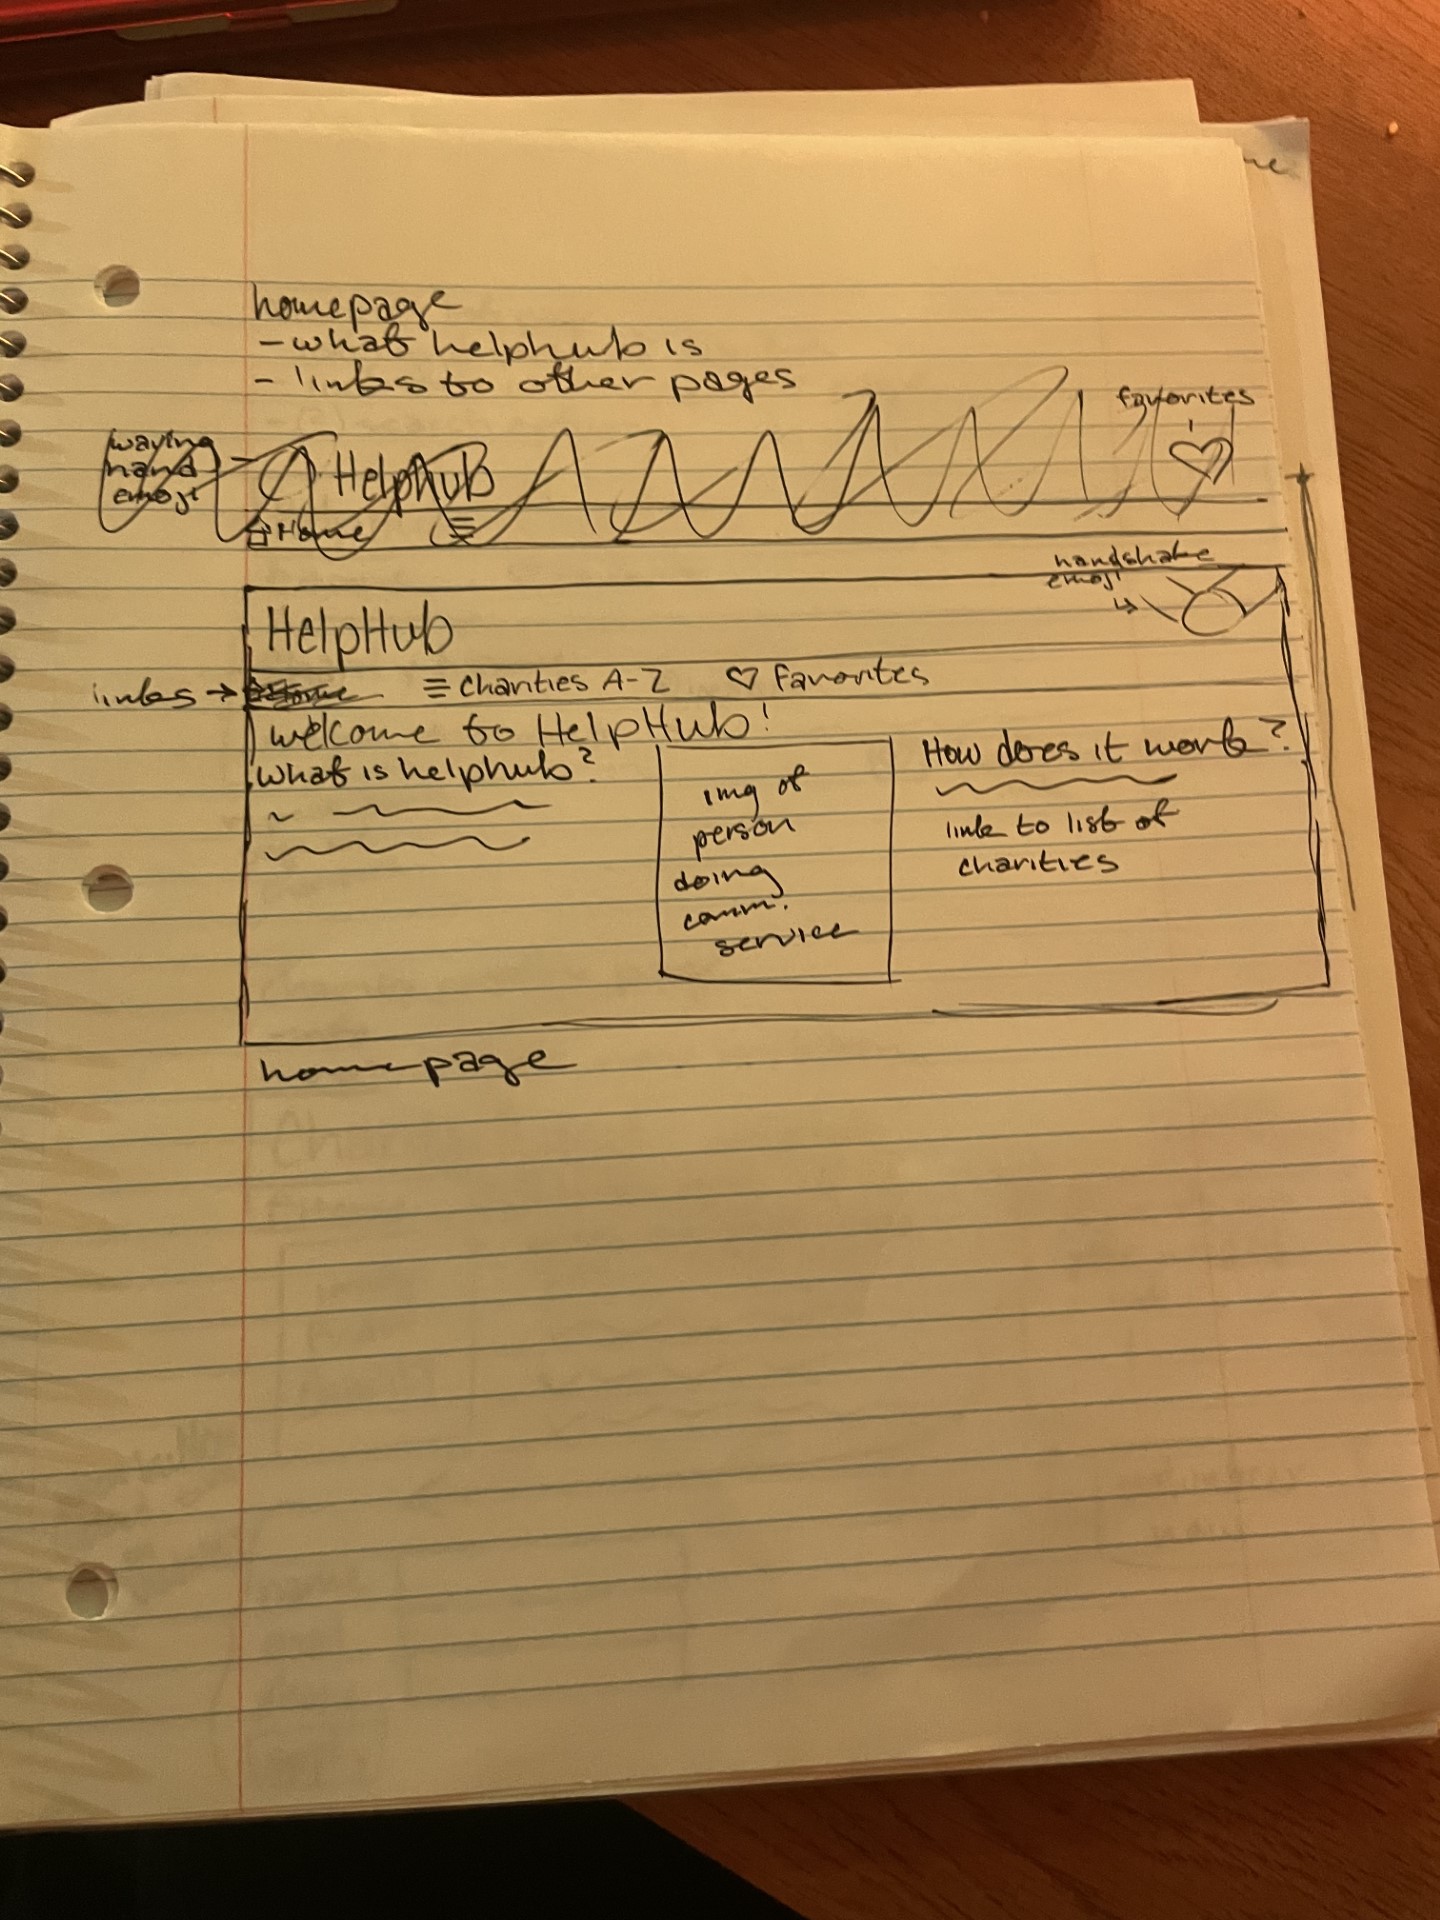 homepage
- what helphub is
- links to other pages
favorites
waving
hand
emoji
Helphub
Home
handshake
emoji
HelpHub
links → Home ≡ Charities A-Z ♡ Favorites
welcome to HelpHub!
what is helphub?
How does it work?
img of
person
doing
comm.
service
link to list of
charities
homepage